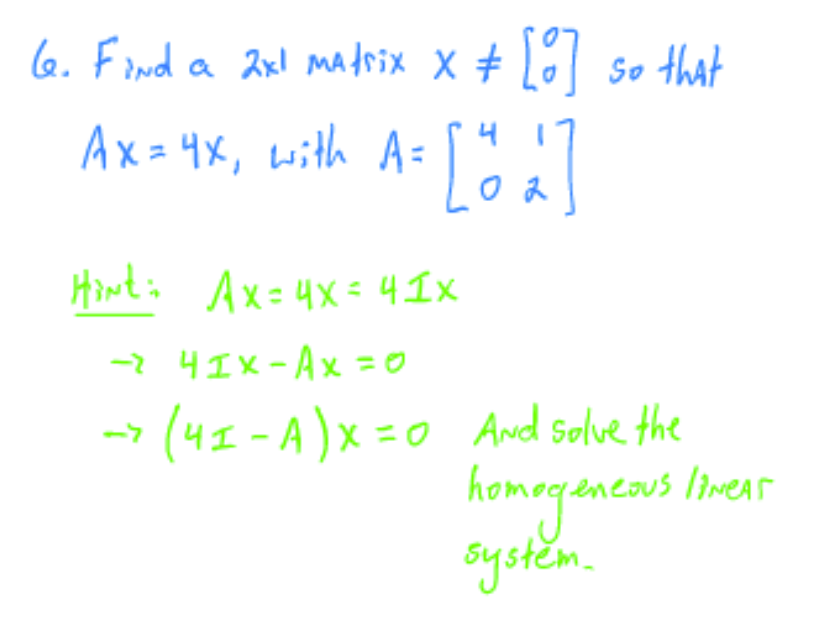 6. Find a 2x1 matrix x ≠ [0 0] so that
Ax = 4x, with A = [4 1
0 2]
Hint: Ax = 4x = 4Ix
→ 4Ix - Ax = 0
→ (4I - A)x = 0 And solve the
homogeneous linear
system.